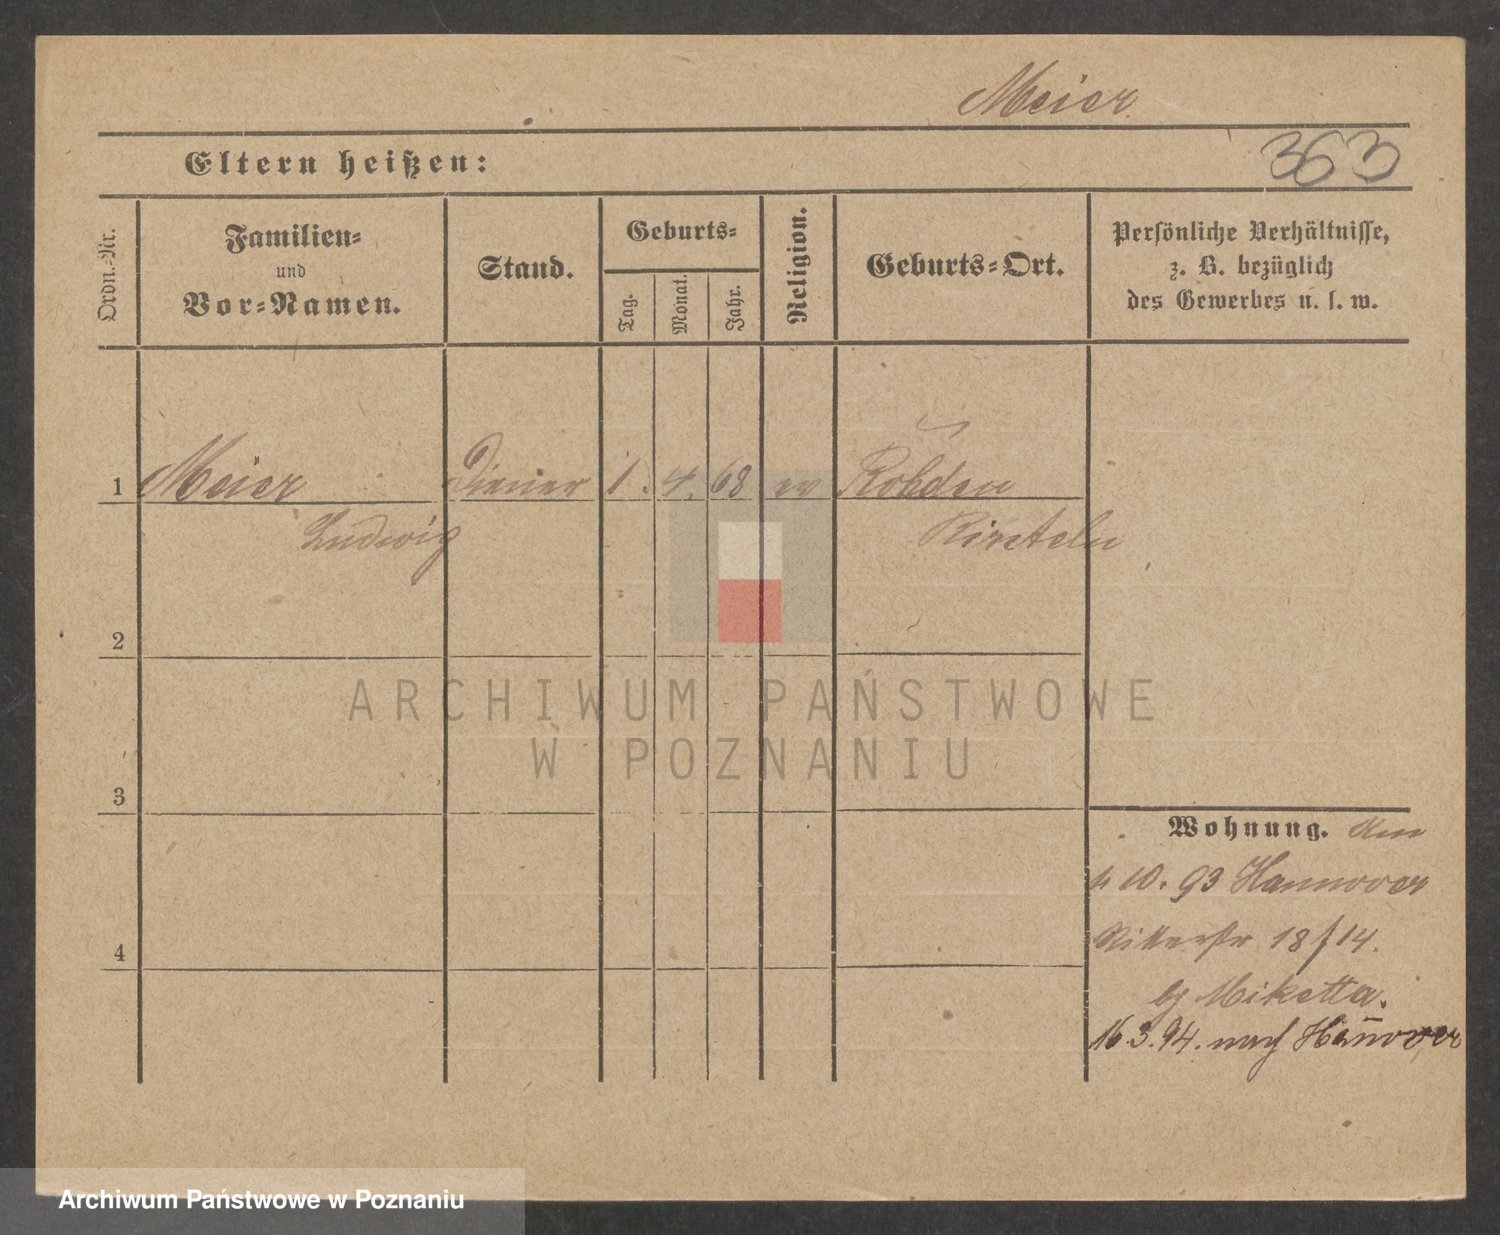 Meier
Eltern heißen:
363
Ordn.-Nr.
Familien-
und
Vor-Namen.
Stand.
Geburts-
Tag.
Monat.
Jahr.
Religion.
Geburts-Ort.
Persönliche Verhältnisse,
z. B. bezüglich
des Gewerbes u. s. w.
1 Meier Diener 1. 4. 68 ev Rohden
Ludwig Rinteln
2
3
4
Wohnung.
10. 93 Hannover
Ritterstr 18/14.
by Miketta.
16.3.94. nach Han̄over
ARCHIWUM PAŃSTWOWE
W POZNANIU
Archiwum Państwowe w Poznaniu